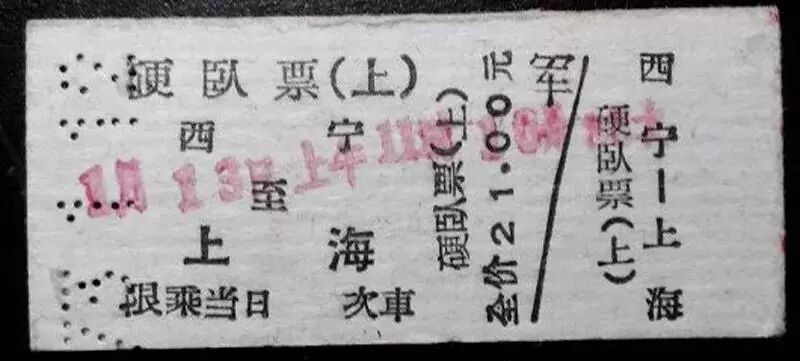 硬臥票(上)
西宁
至
上海
限乘当日 次車
1月13日上午11
硬臥票(上)
全价21.00元
西宁—上海
硬臥票(上)